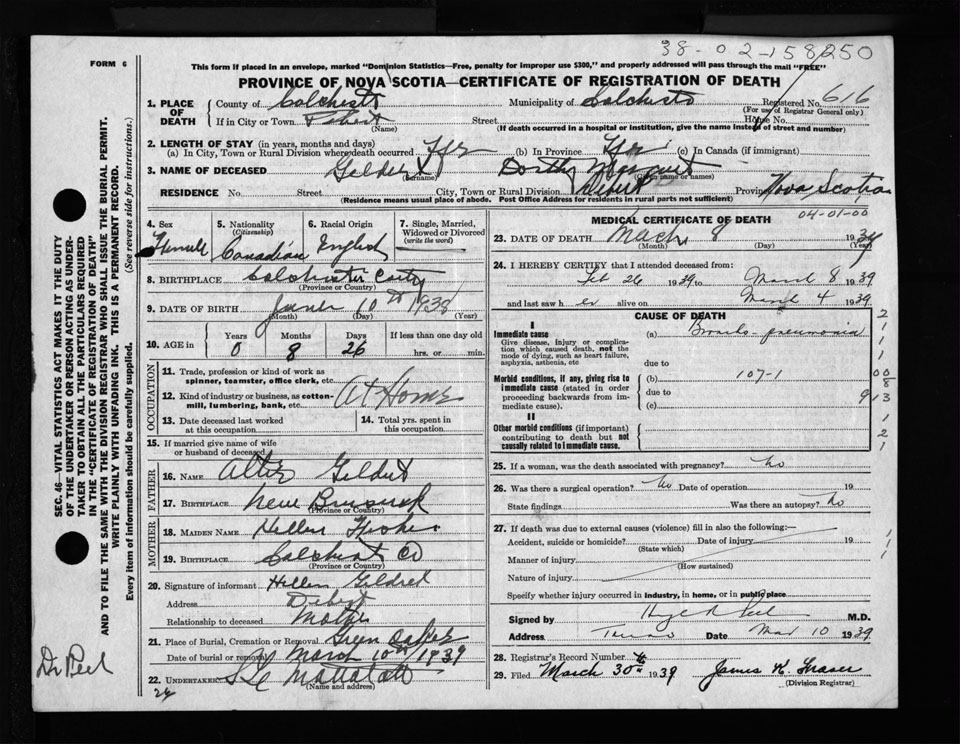 38-02-158250
FORM 6
This form if placed in an envelope, marked "Dominion Statistics—Free, penalty for improper use $300," and properly addressed will pass through the mail "FREE"
PROVINCE OF NOVA SCOTIA—CERTIFICATE OF REGISTRATION OF DEATH
1. PLACE OF DEATH
County of Colchester Municipality of Colchester Registered No. 616
(For use of Registrar General only)
If in City or Town Street House No.
(Name) (If death occurred in a hospital or institution, give the name instead of street and number)
2. LENGTH OF STAY (in years, months and days)
(a) In City, Town or Rural Division where death occurred (b) In Province (c) In Canada (if immigrant)
3. NAME OF DECEASED Gildert Dorthy
(Surname) (Given name or names)
RESIDENCE No. Street City, Town or Rural Division Debert Province Nova Scotia
(Residence means usual place of abode. Post Office Address for residents in rural parts not sufficient)
4. Sex
Femall
5. Nationality
(Citizenship)
Canadian
6. Racial Origin
English
7. Single, Married, Widowed or Divorced
(write the word)
8. BIRTHPLACE Colchester
(Province or Country)
9. DATE OF BIRTH June 10th 1938
(Month) (Day) (Year)
10. AGE in
Years Months Days If less than one day old
0 8 26 hrs. or min.
OCCUPATION
11. Trade, profession or kind of work as spinner, teamster, office clerk, etc.
12. Kind of industry or business, as cotton-mill, lumbering, bank, etc. At Home
13. Date deceased last worked at this occupation
14. Total yrs. spent in this occupation
15. If married give name of wife or husband of deceased
FATHER
16. NAME Gildert
17. BIRTHPLACE New
(Province or Country)
MOTHER
18. MAIDEN NAME Hellen
19. BIRTHPLACE Colchest Co
(Province or Country)
20. Signature of informant Hellen Gildred
Address Debert
Relationship to deceased Mother
21. Place of Burial, Cremation or Removal Green
Date of burial or removal March 10th 1939
22. UNDERTAKER
(Name and address)
24
Dr Peel
MEDICAL CERTIFICATE OF DEATH
04-01-00
23. DATE OF DEATH Mach 8 1939
(Month) (Day) (Year)
24. I HEREBY CERTIFY that I attended deceased from:
Feb 26 1939 to March 8 1939
and last saw her alive on March 4 1939
CAUSE OF DEATH
I
Immediate cause
Give disease, injury or complication which caused death, not the mode of dying, such as heart failure, asphyxia, asthenia, etc
(a) Broncho-pneumonia
due to
Morbid conditions, if any, giving rise to immediate cause (stated in order proceeding backwards from immediate cause).
(b) 107-1
due to
(c)
II
Other morbid conditions (if important) contributing to death but not causally related to immediate cause.
25. If a woman, was the death associated with pregnancy? No
26. Was there a surgical operation? No Date of operation 19
State findings Was there an autopsy? No
27. If death was due to external causes (violence) fill in also the following:—
Accident, suicide or homicide? Date of injury 19
(State which)
Manner of injury
(How sustained)
Nature of injury
Specify whether injury occurred in Industry, in home, or in public place
Signed by M.D.
Address Truro Date Mar 10 1939
28. Registrar's Record Number
29. Filed March 30th 1939 James K. Fraser
(Division Registrar)
SEC. 46—VITAL STATISTICS ACT MAKES IT THE DUTY
OF THE UNDERTAKER OR PERSON ACTING AS UNDERTAKER
TO OBTAIN ALL THE PARTICULARS REQUIRED
IN THE "CERTIFICATE OF REGISTRATION OF DEATH"
AND TO FILE THE SAME WITH THE DIVISION REGISTRAR WHO SHALL ISSUE THE BURIAL PERMIT.
WRITE PLAINLY WITH UNFADING INK. THIS IS A PERMANENT RECORD.
Every item of information should be carefully supplied. (See reverse side for instructions.)